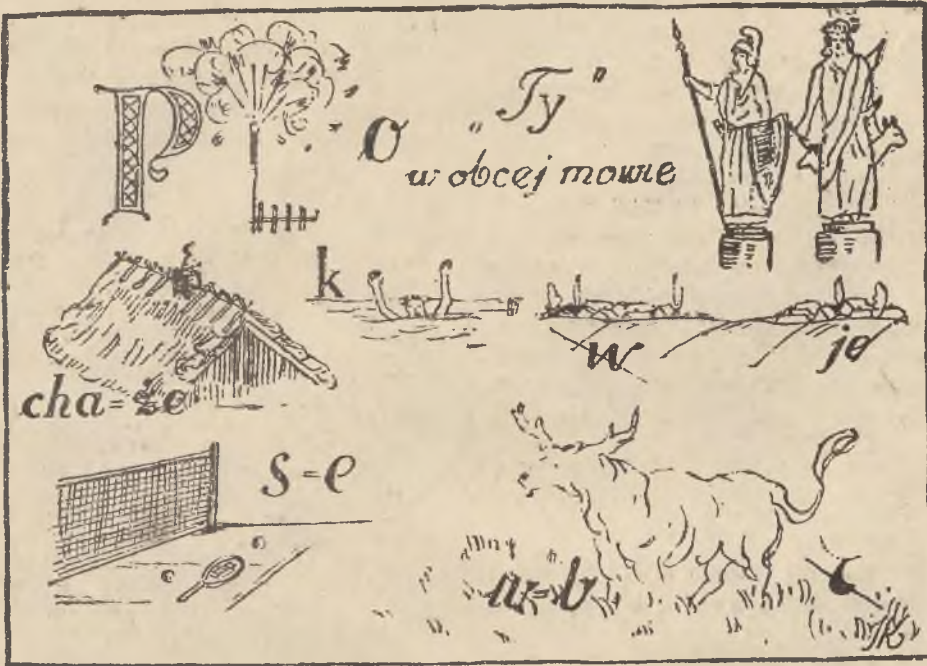 P O „Ty”
w obcej mowie
k
w je
cha=że
s=e